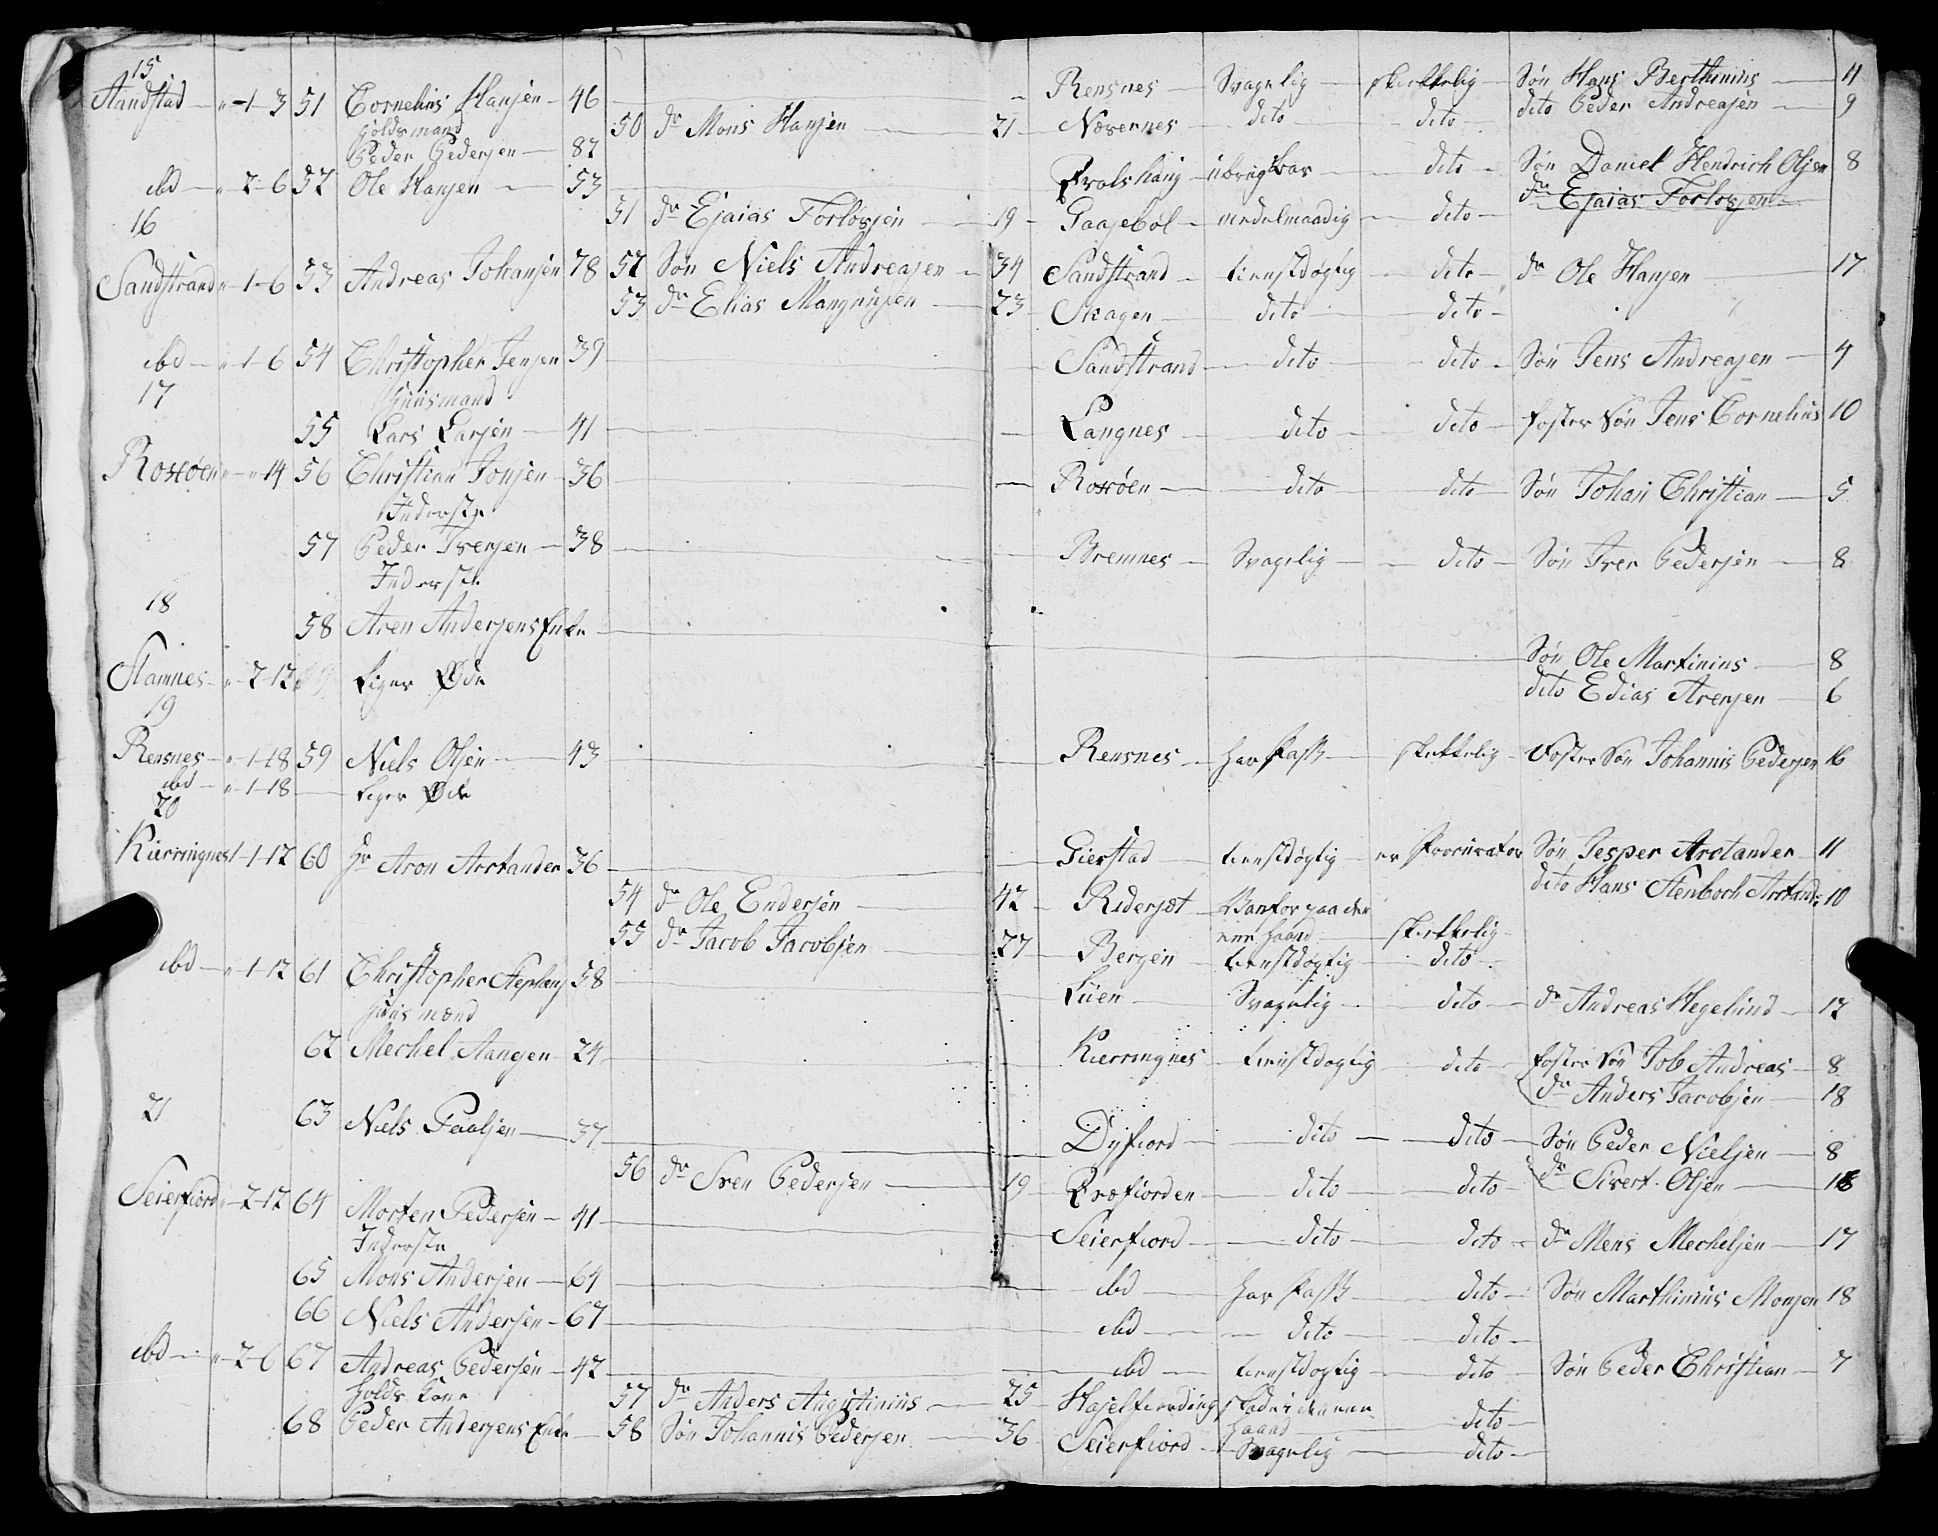 15
Aandstad — " -1- 3 51 Cornelius Hansen — 46 — Rensnes — Svagelig — skikkelig — Søn Hans Berthinius — 11
Holdsmand 50 dr Mons Hansen — 21 — Næsernes — dito — dito — dito Peder Andreasen — 9
Peder Pedersen — 87
ibd — " 2-6 52 Ole Hansen — 53 — ubrugbar — dito — Søn Daniel Hendrich Olsen 8
16 51 dr Esaias Torlovsen — 19 — Gaasebøl — middelmaadig — dito — dr Esaias Torlovsen
Sandstrand " -1-6 53 Andreas Johansen 78 52 Søn Niels Andreasen — 34 Sandstrand — tienstdøgtig — dito — dr Ole Hansen — 17
53 dr Elias Mangnusen — 23 — Skagen — dito — dito —
ibd — " -1-6 54 Christopher Jensen 39 — Sandstrand — dito — dito — Søn Jens Andreasen — 4
17 Huusmand
55 Lars Larsen — 41 — Langnes — dito — dito — foster Søn Jens Cornelius 10
Roxøen " — " 14 56 Christian Jonsen — 36 — Roxøen — dito — dito — Søn Johan Christian — 5
Inderste
57 Peder Iversen — 38 — Bremnes — Svagelig — dito — Søn Iver Pedersen — 8
Inderste
18
58 Aren Andersens Enke — Søn Ole Martinius — 8
Stamnes — " 2-12 Liger Øde dito Edias Arensen — 6
19
Rensnes — " -1-18 59 Niels Olsen — 43 — Rensnes — har Pass — skikkelig — Foster Søn Johannis Pedersen 16
ibd — " -1-18 — Liger Øde
20
Kierringnes 1-1-12 60 Hr Aron Arctander 36 — Gierstad — tienstdøgtig — er Procurator Søn Jesper Arctander — 11
54 dr Ole Endersen — 42 — Ridersæt — Vanfør paa den dito Hans Stenboch Arctand: 10
ene Haand — skikkelig
55 dr Jacob Jacobsen — 27 — Bergen — tienstdøgtig — dito —
ibd — " -1-12 61 Christopher Stephans 58 — Lien — Svagelig — dito — dr Andreas Hegelund — 12
Huus mænd
62 Mechel Aangen — 24 — Kierringnes — tienstdøgtig — dito — foster Søn Job Andreas — 8
dr Anders Jacobsen — 18
21 63 Niels Paalsen — 37 — Dyfiord — dito — dito — Søn Peder Nielsen — 8
56 dr Sven Pedersen — 19 — dito — dito dr Sivert Olsen — 18
Seierfiord " -2-12 64 Morten Pedersen — 41 — Seierfiord — dito — dito — dr Mens Mechelsen — 17
Inderste
65 Mons Andersen — 64 — ibd — har Pass — dito — Søn Marthinius Monsen 18
66 Niels Andersen — 67 — ibd — dito — dito —
ibd — " -2-6 67 Andreas Pedersen — 42 — ibd — tienstdøgtig — dito — Søn Peder Christian — 7
Holds Kone 57 dr Anders Augustinius — 25 — Haselfiording skade i den ene
Haand — dito —
68 Peder Andersens Enke — 58 Søn Johannis Pedersen — 36 — Seierfiord — Svagelig — dito —